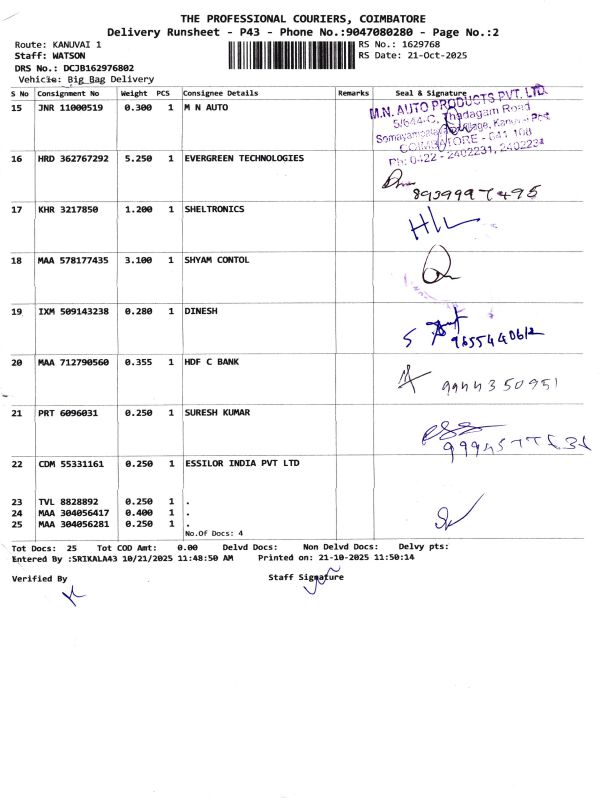 THE PROFESSIONAL COURIERS, COIMBATORE
Delivery Runsheet - P43 - Phone No.:9047080280 - Page No.:2
Route: KANUVAI 1 RS No.: 1629768
Staff: WATSON RS Date: 21-Oct-2025
DRS No.: DCJB162976802
Vehicle: Big Bag Delivery
S No Consignment No Weight PCS Consignee Details Remarks Seal & Signature
15 JNR 11000519 0.300 1 M N AUTO
M.N. AUTO PRODUCTS PVT. LTD.
5/644-C, Thadagam Road
Somayampalayam Village, Kanuvai Post
COIMBATORE - 641 108
Ph: 0422 - 2402231, 2402234
16 HRD 362767292 5.250 1 EVERGREEN TECHNOLOGIES
8939997495
17 KHR 3217850 1.200 1 SHELTRONICS
18 MAA 578177435 3.100 1 SHYAM CONTOL
19 IXM 509143238 0.280 1 DINESH
9655440612
20 MAA 712790560 0.355 1 HDF C BANK
9944350951
21 PRT 6096031 0.250 1 SURESH KUMAR
22 CDM 55331161 0.250 1 ESSILOR INDIA PVT LTD
23 TVL 8828892 0.250 1 .
24 MAA 304056417 0.400 1 .
25 MAA 304056281 0.250 1 .
No.Of Docs: 4
Tot Docs: 25 Tot COD Amt: 0.00 Delvd Docs: Non Delvd Docs: Delvy pts:
Entered By :SRIKALA43 10/21/2025 11:48:50 AM Printed on: 21-10-2025 11:50:14
Verified By Staff Signature